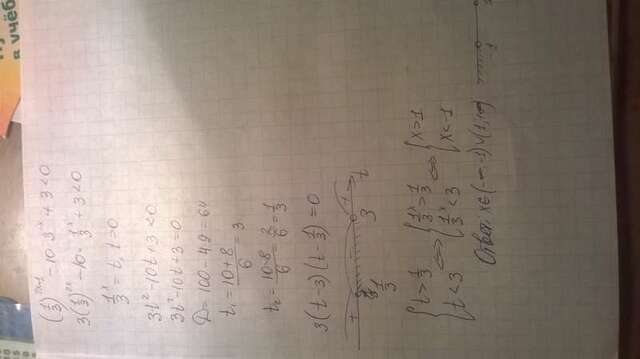 (1/3)^(2x-1) - 10·3^(-x) + 3 < 0
3(1/3)^(2x) - 10·1/3^x + 3 < 0
1/3^x = t, t > 0
3t² - 10t + 3 < 0
3t² - 10t + 3 = 0
D = 100 - 49 = 64
t₁ = (10+8)/6 = 3
t₂ = (10-8)/6 = 2/6 = 1/3
3(t-3)(t-1/3) = 0
+ - + 1/3 3 t
{t > 1/3 ⇔ {1/3^x > 1/3 ⇔ {x > 1
{t < 3 {1/3^x < 3 {x < -1
Ответ: x∈(-∞;-1)∪(1;+∞)
-1
в учёб